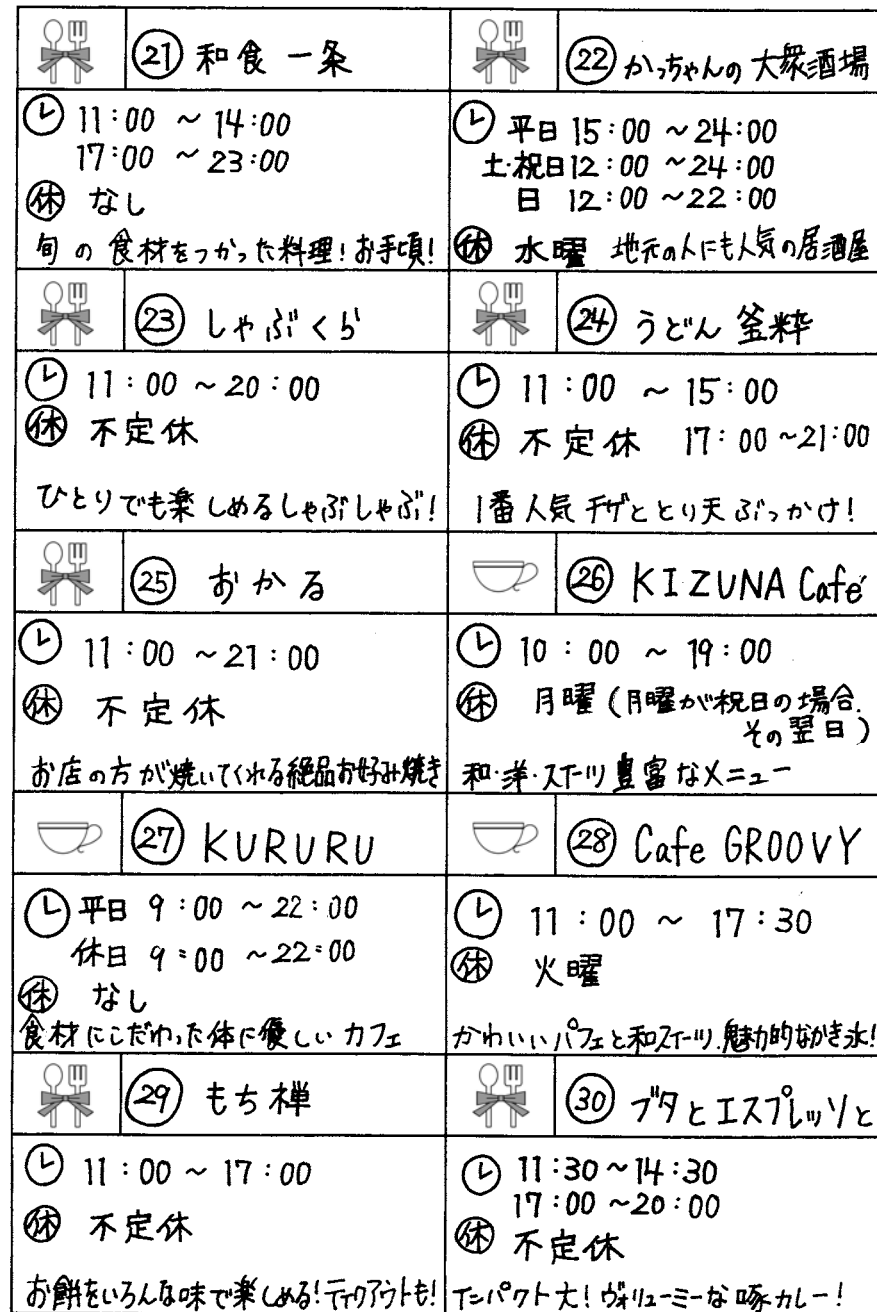 ㉑ 和食 一条
11:00 ~ 14:00
17:00 ~ 23:00
㊡ なし
旬の食材をつかった料理!お手頃!
㉒ かっちゃんの大衆酒場
平日 15:00 ~24:00
土・祝日 12:00 ~24:00
日 12:00 ~22:00
㊡ 水曜 地元の人にも人気の居酒屋
㉓ しゃぶくら
11:00 ~20:00
㊡ 不定休
ひとりでも楽しめるしゃぶしゃぶ!
㉔ うどん 釜粋
11:00 ~ 15:00
㊡ 不定休 17:00 ~21:00
1番人気 チーズととり天ぶっかけ!
㉕ おかる
11:00 ~21:00
㊡ 不定休
お店の方が焼いてくれる絶品お好み焼き
㉖ KIZUNA Café
10:00 ~ 19:00
㊡ 月曜(月曜が祝日の場合、
その翌日)
和・洋・スイーツ 豊富なメニュー
㉗ KURURU
平日 9:00 ~22:00
休日 9:00 ~22:00
㊡ なし
食材にこだわった体に優しいカフェ
㉘ Cafe GROOVY
11:00 ~ 17:30
㊡ 火曜
かわいいパフェと和スイーツ、魅力的なかき氷!
㉙ もち禅
11:00 ~ 17:00
㊡ 不定休
お餅をいろんな味で楽しめる!テイクアウトも!
㉚ ブタとエスプレッソと
11:30 ~14:30
17:00 ~20:00
㊡ 不定休
インパクト大!ヴォリューミーな豚カレー!